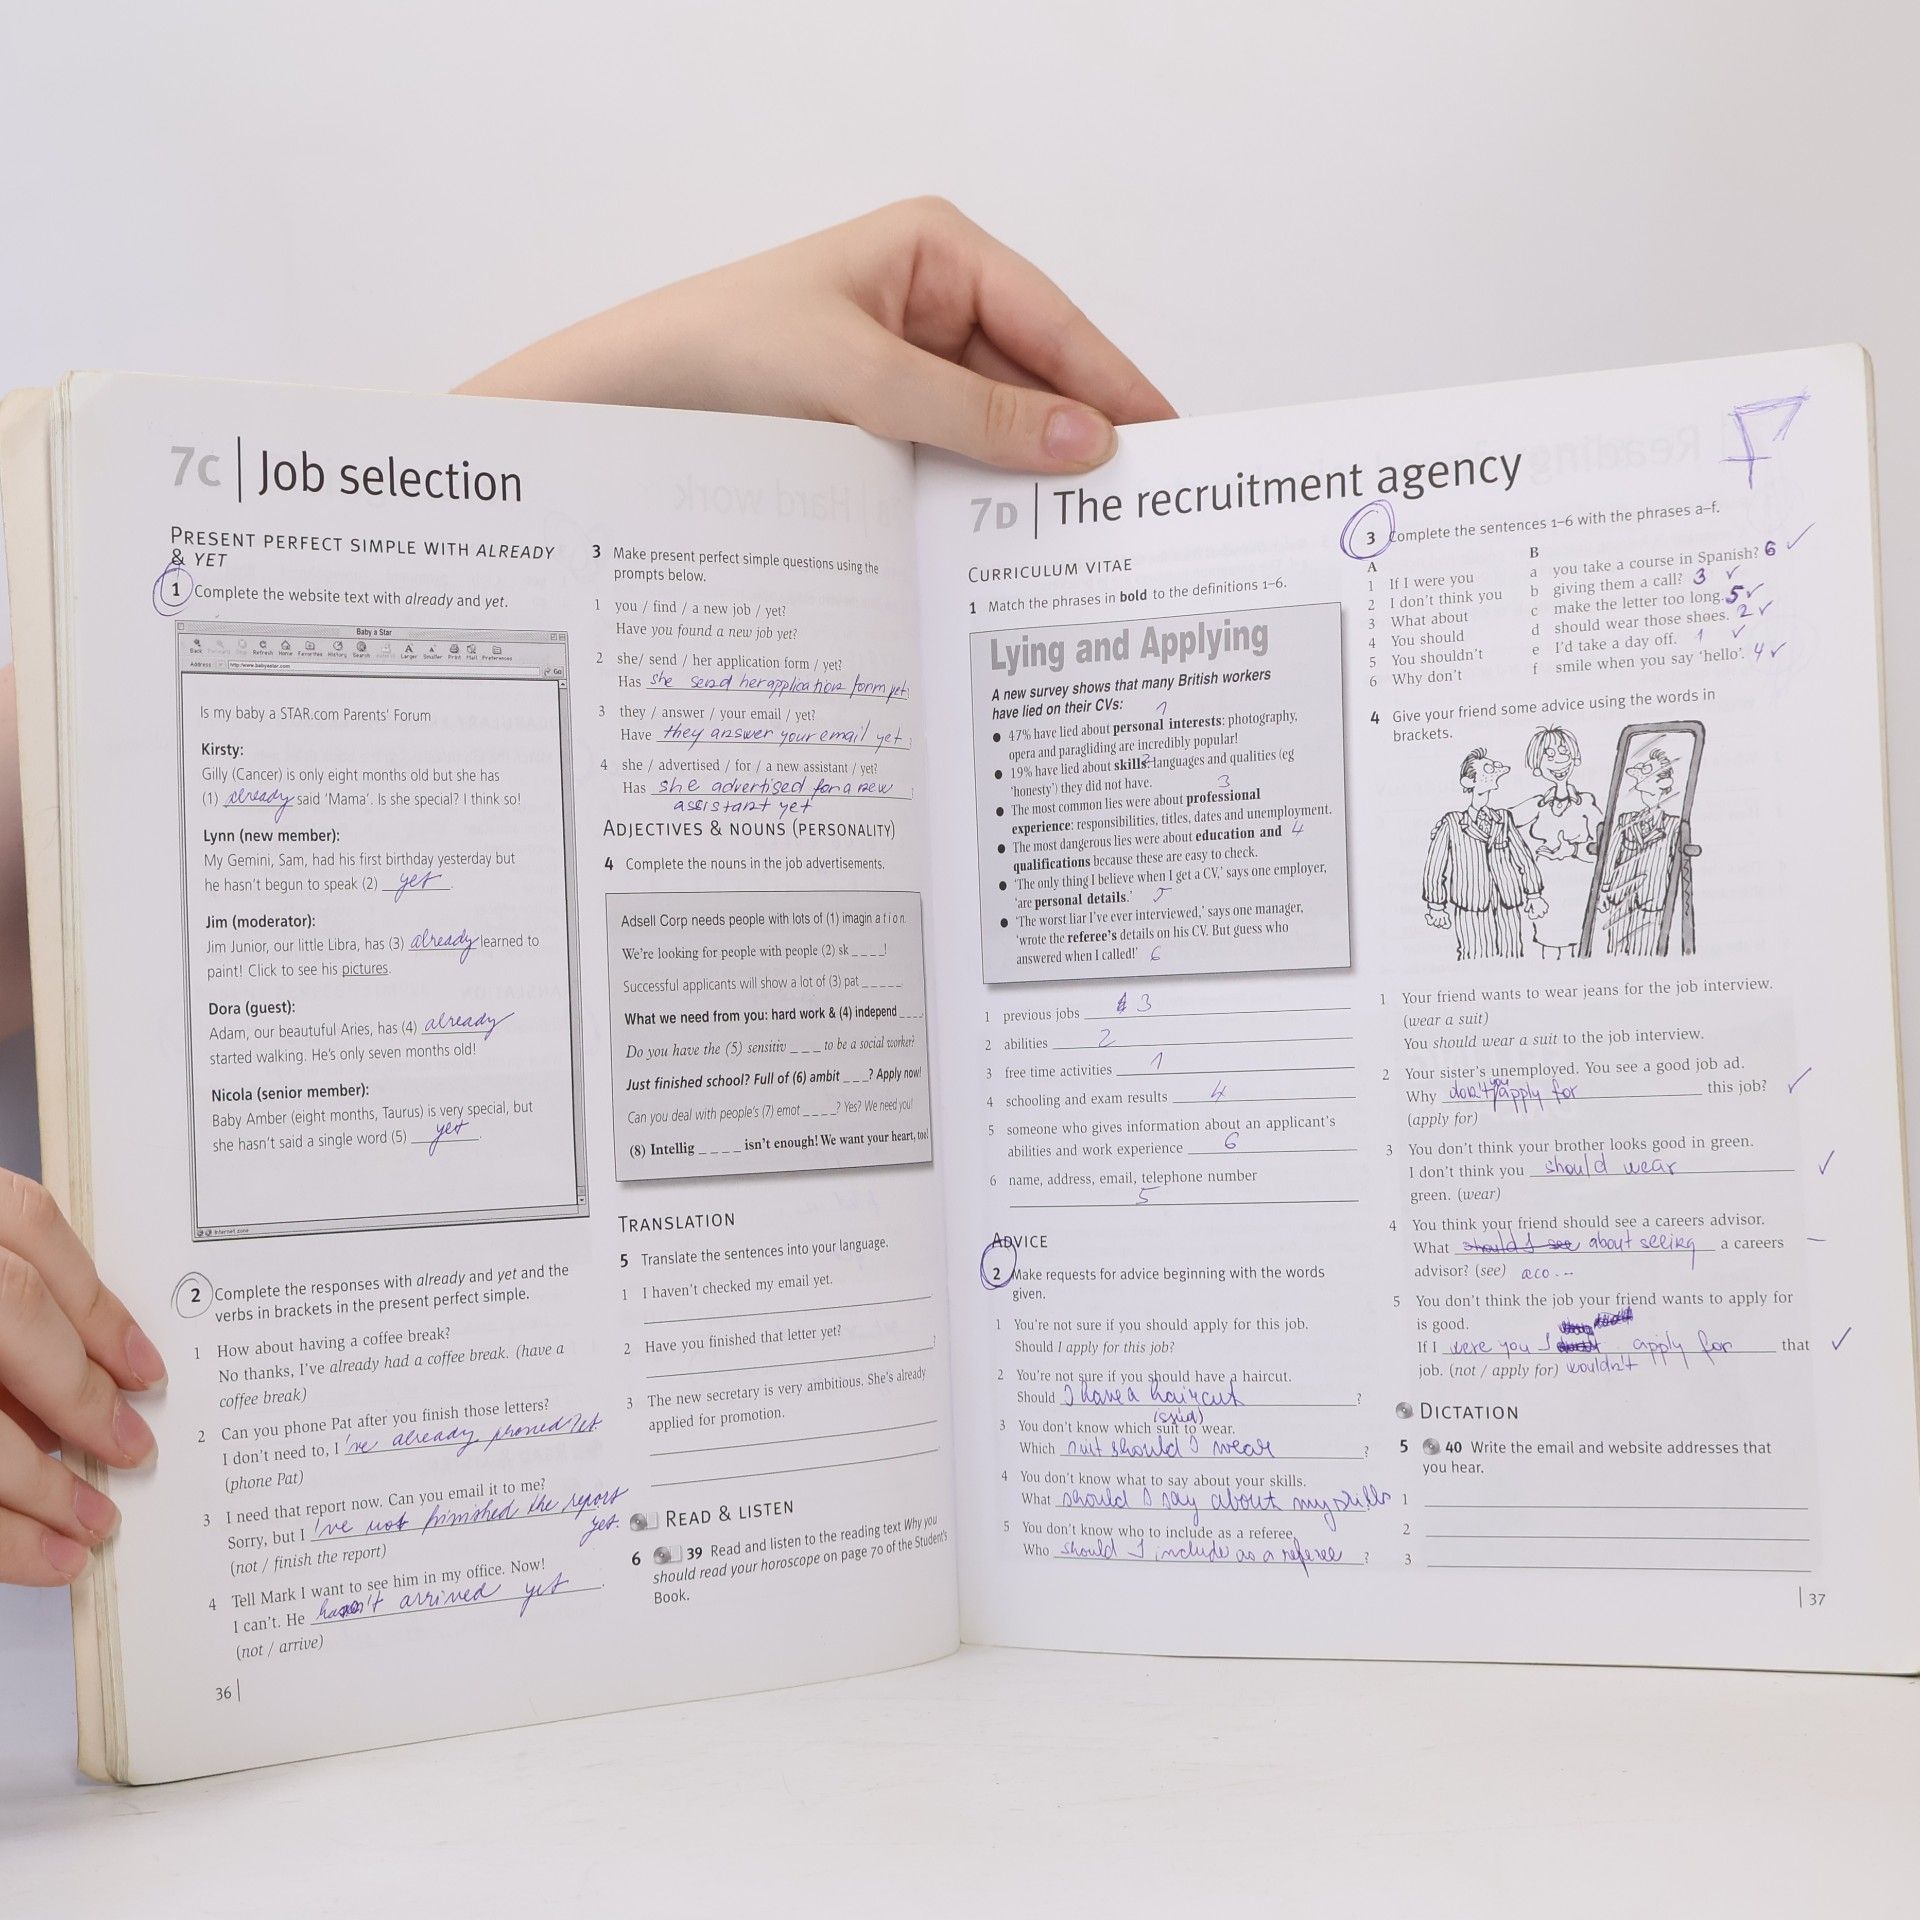 7C | Job selection
PRESENT PERFECT SIMPLE WITH ALREADY
& YET
1 Complete the website text with already and yet.
Baby a Star
Back Forward Stop Refresh Home Favorites History Search Larger Smaller Print Mail Preferences
Address http://www.babyastar.com Go
Is my baby a STAR.com Parents' Forum
Kirsty:
Gilly (Cancer) is only eight months old but she has
(1) already said 'Mama'. Is she special? I think so!
Lynn (new member):
My Gemini, Sam, had his first birthday yesterday but
he hasn't begun to speak (2) yet.
Jim (moderator):
Jim Junior, our little Libra, has (3) already learned to
paint! Click to see his pictures.
Dora (guest):
Adam, our beautuful Aries, has (4) already
started walking. He's only seven months old!
Nicola (senior member):
Baby Amber (eight months, Taurus) is very special, but
she hasn't said a single word (5) yet.
Internet zone
2 Complete the responses with already and yet and the
verbs in brackets in the present perfect simple.
1 How about having a coffee break?
No thanks, I've already had a coffee break. (have a
coffee break)
2 Can you phone Pat after you finish those letters?
I don't need to, I 've already phoned Pat.
(phone Pat)
3 I need that report now. Can you email it to me?
Sorry, but I 've not finished the report
yet.
(not / finish the report)
4 Tell Mark I want to see him in my office. Now!
I can't. He hasn't arrived yet.
(not / arrive)
36 |
3 Make present perfect simple questions using the
prompts below.
1 you / find / a new job / yet?
Have you found a new job yet?
2 she/ send / her application form / yet?
Has she send her application form yet
3 they / answer / your email / yet?
Have they answer your email yet
4 she / advertised / for / a new assistant / yet?
Has she advertised for a new
assistant yet
ADJECTIVES & NOUNS (PERSONALITY)
4 Complete the nouns in the job advertisements.
Adsell Corp needs people with lots of (1) imagination.
We're looking for people with people (2) sk _ _ _ _!
Successful applicants will show a lot of (3) pat _ _ _ _ _.
What we need from you: hard work & (4) independ _ _ _ _.
Do you have the (5) sensitiv _ _ _ to be a social worker?
Just finished school? Full of (6) ambit _ _ _? Apply now!
Can you deal with people's (7) emot _ _ _ _? Yes? We need you!
(8) Intellig _ _ _ _ isn't enough! We want your heart, too!
TRANSLATION
5 Translate the sentences into your language.
1 I haven't checked my email yet.
2 Have you finished that letter yet?
3 The new secretary is very ambitious. She's already
applied for promotion.
READ & LISTEN
6 39 Read and listen to the reading text Why you
should read your horoscope on page 70 of the Student's
Book.
7D | The recruitment agency
CURRICULUM VITAE
1 Match the phrases in bold to the definitions 1–6.
Lying and Applying
A new survey shows that many British workers
have lied on their CVs: 1
• 47% have lied about personal interests: photography,
opera and paragliding are incredibly popular!
• 19% have lied about skills: 2 languages and qualities (eg
'honesty') they did not have. 3
• The most common lies were about professional
experience: responsibilities, titles, dates and unemployment.
• The most dangerous lies were about education and 4
qualifications because these are easy to check.
• 'The only thing I believe when I get a CV,' says one employer,
'are personal details.' 5
• 'The worst liar I've ever interviewed,' says one manager,
'wrote the referee's details on his CV. But guess who
answered when I called!' 6
1 previous jobs 3
2 abilities 2
3 free time activities 1
4 schooling and exam results 4
5 someone who gives information about an applicant's
abilities and work experience 6
6 name, address, email, telephone number
5
ADVICE
2 Make requests for advice beginning with the words
given.
1 You're not sure if you should apply for this job.
Should I apply for this job?
2 You're not sure if you should have a haircut.
Should I have a haircut ?
3 You don't know which suit to wear.
Which suit should I wear ?
4 You don't know what to say about your skills.
What should I say about my skills
5 You don't know who to include as a referee.
Who should I include as a referee ?
3 Complete the sentences 1–6 with the phrases a–f.
A
1 If I were you
2 I don't think you
3 What about
4 You should
5 You shouldn't
6 Why don't
B
a you take a course in Spanish? 6 ✓
b giving them a call? 3 ✓
c make the letter too long. 5 ✓
d should wear those shoes. 2 ✓
e I'd take a day off. 1 ✓
f smile when you say 'hello'. 4 ✓
4 Give your friend some advice using the words in
brackets.
1 Your friend wants to wear jeans for the job interview.
(wear a suit)
You should wear a suit to the job interview.
2 Your sister's unemployed. You see a good job ad.
Why don't you apply for this job? ✓
(apply for)
3 You don't think your brother looks good in green.
I don't think you should wear ✓
green. (wear)
4 You think your friend should see a careers advisor.
What should I see about seeing a careers –
advisor? (see)
5 You don't think the job your friend wants to apply for
is good.
If I were you I apply for that ✓
job. (not / apply for) wouldn't
DICTATION
5 40 Write the email and website addresses that
you hear.
1
2
3
| 37